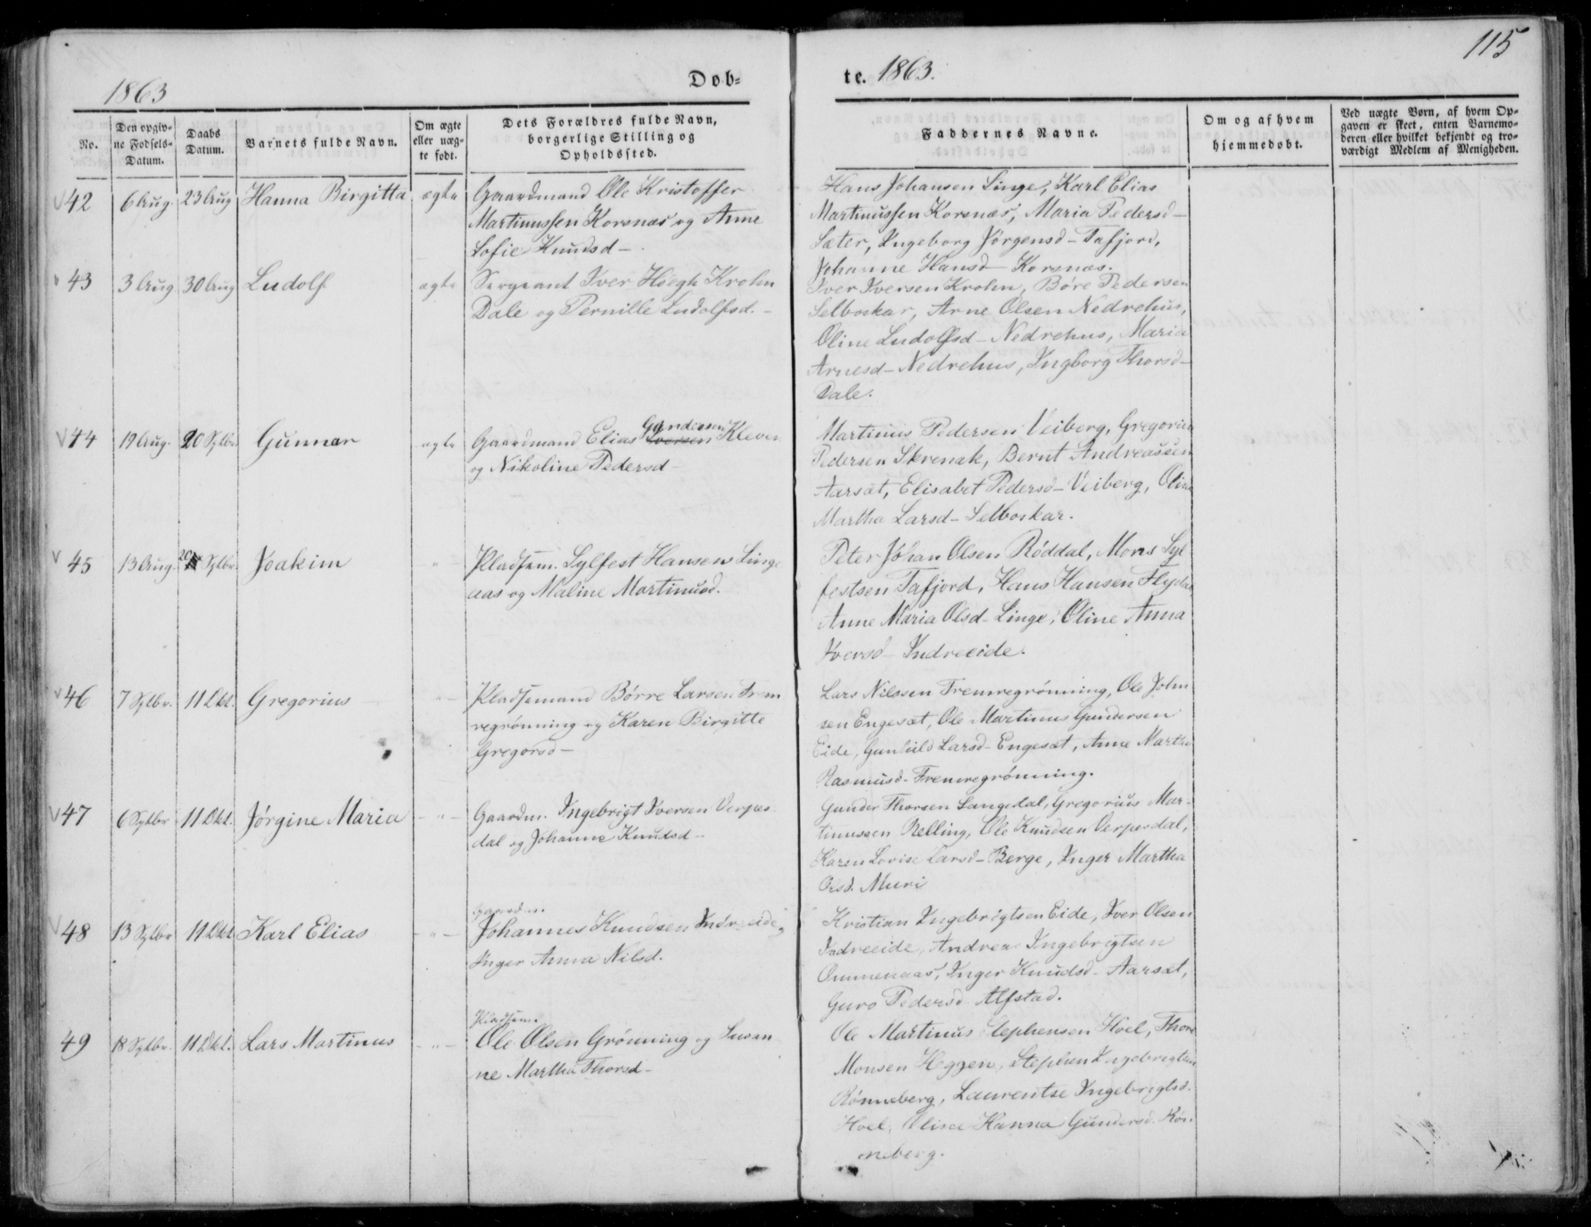 1863
Døb-
te. 1863.
115
No.
Den opgiv-
ne Fødsels-
Datum.
Daabs
Datum.
Barnets fulde Navn.
Om ægte
eller uæg-
te født.
Dets Forældres fulde Navn,
borgerlige Stilling og
Opholdssted.
Faddernes Navne.
Om og af hvem
hjemmedøbt.
Ved uægte Børn, af hvem Op-
gaven er skeet, enten Barnemo-
deren eller hvilket bekjendt og tro-
værdigt Medlem af Menigheden.
42 6 Aug. 23 Aug Hanna Birgitta ægte Gaardmand Ole Kristoffer
Martinussen Korsnæs og Anne
Sofie Knudsd-
Hans Johansen Linge, Karl Elias
Martinussen Korsnæs, Maria Pedersd-
Sæter, Ingeborg Jørgensd- Tafjord,
Johanne Hansd- Korsnæs.
43 3 Aug 30 Aug Ludolf ægte Sergeant Iver Høegh Krohn
Dale og Pernille Ludolfsd.-
Iver Iversen Krohn, Børe Pedersen
Selboskar, Arne Olsen Nedrehus,
Oline Ludolfsd- Nedrehus, Maria
Arnesd- Nedrehus, Ingborg Thorsd-
Dale.
44 19 Aug. 20 Sptbr Gunnar ægte Gaardmand Elias Iversen Gundersen Kleven
og Nikoline Pedersd-
Martinus Pedersen Veiberg, Gregorius
Pedersen Skrenak, Bernt Andreassen
Aarsæt, Elisabet Pedersd- Veiberg, Oline
Martha Larsd- Selboskar.
45 13 Aug. 20 Sptbr. Joakim -"- Pladsem. Sylfest Hansen Linge
aas og Maline Martinusd.
Peter Johan Olsen Røddal, Mons Syl
festsen Tafjord, Hans Hansen Flydal
Anne Maria Olsd- Linge, Oline Anna
Iversd- Indreeide.
46 7 Sptbr. 11 Okt. Gregorius -"- Pladsemand Børre Larsen Frem
regrønning og Karen Birgitte
Gregorsd-
Lars Nilssen Fremregrønning, Ole John
sen Engesæt, Ole Martinus Gundersen
Eide, Gunhild Larsd- Engesæt, Anne Martha
Rasmusd- Fremregrønning.
47 6 Sptbr 11 Okt. Jørgine Maria -"- Gaardm. Ingebrigt Iversen Verpes
dal og Johanne Knudsd-
Gunder Thorsen Langedal, Gregorius Mar-
tinussen Relling, Ole Knudsen Verpesdal,
Karen Lovise Larsd- Berge, Inger Martha
Muri
48 13 Sptbr 11 Okt Karl Elias -"- Gaardm.
Johannes Knudsen Indreeide,
Inger Anna Nilsd.
Kristian Ingebrigtsen Eide, Iver Olsen
Indreeide, Andreas Ingebrigtsen
Ommenaas, Inger Knudsd- Aarsæt,
Guro Pedersd- Alfstad.
49 18 Sptbr. 11 Okt. Lars Martinus -"- Pladsem.
Ole Olsen Grønning og Susan
ne Martha Thorsd-
Ole Martinus Stephensen Hoel, Thore
Monsen Heggen, Stephen Ingebrigtsen
Rønneberg, Laurentse Ingebrigtsd.
Hoel, Olina Hanna Gundersd. Røn-
neberg.